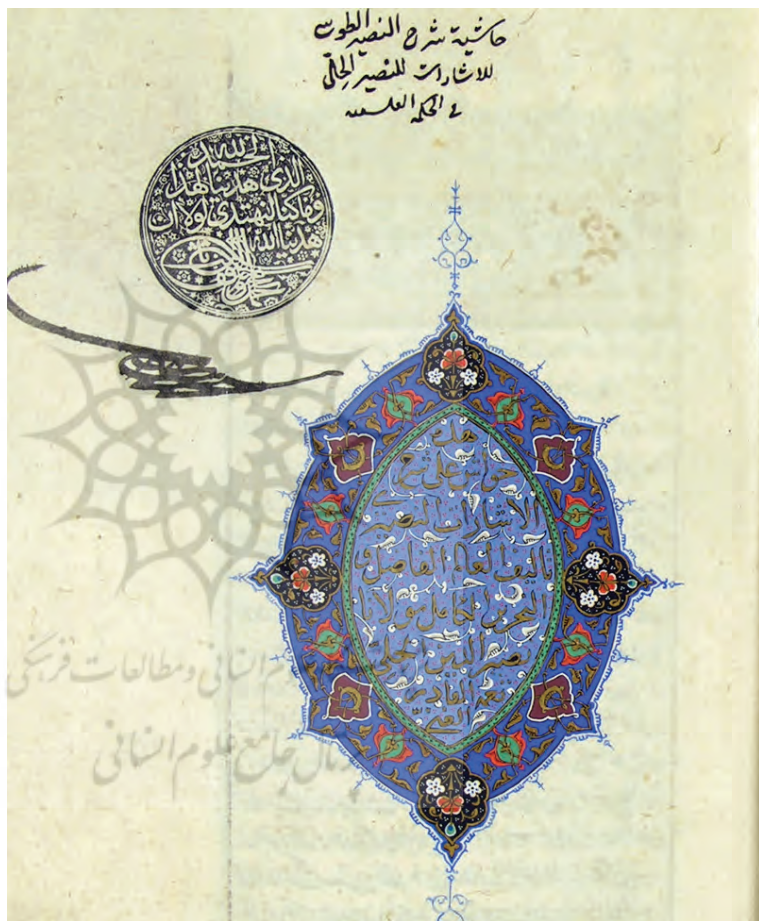 حاشية شرح النصير الطوسي
للاشارات للنصير الحلي
في الحكمة
الحمد لله
الذي هدينا لهذا
وما كنا لنهتدي لولا ان
هدينا الله
هذه
حواش على شرح
الاشارات
تاليف العالم الفاضل و
البحر الكامل مولانا
نصير الدين الحلي
علوم انسانی و مطالعات فرهنگی
پرتال جامع علوم انسانی